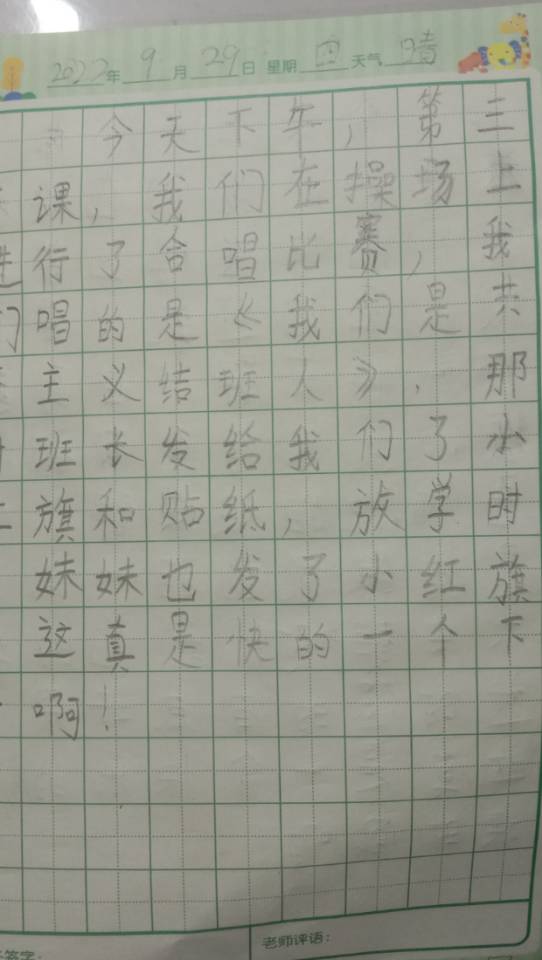 2022年9月29日 星期四 天气 晴
今天下午，第三
课，我们在操场上
进行了合唱比赛，我
们唱的是《我们是共
主义结班人》，那
班长发给我们了小
旗和贴纸，放学时
妹妹也发了小红旗
这真是快的一个下
啊！
老师评语：
签字：